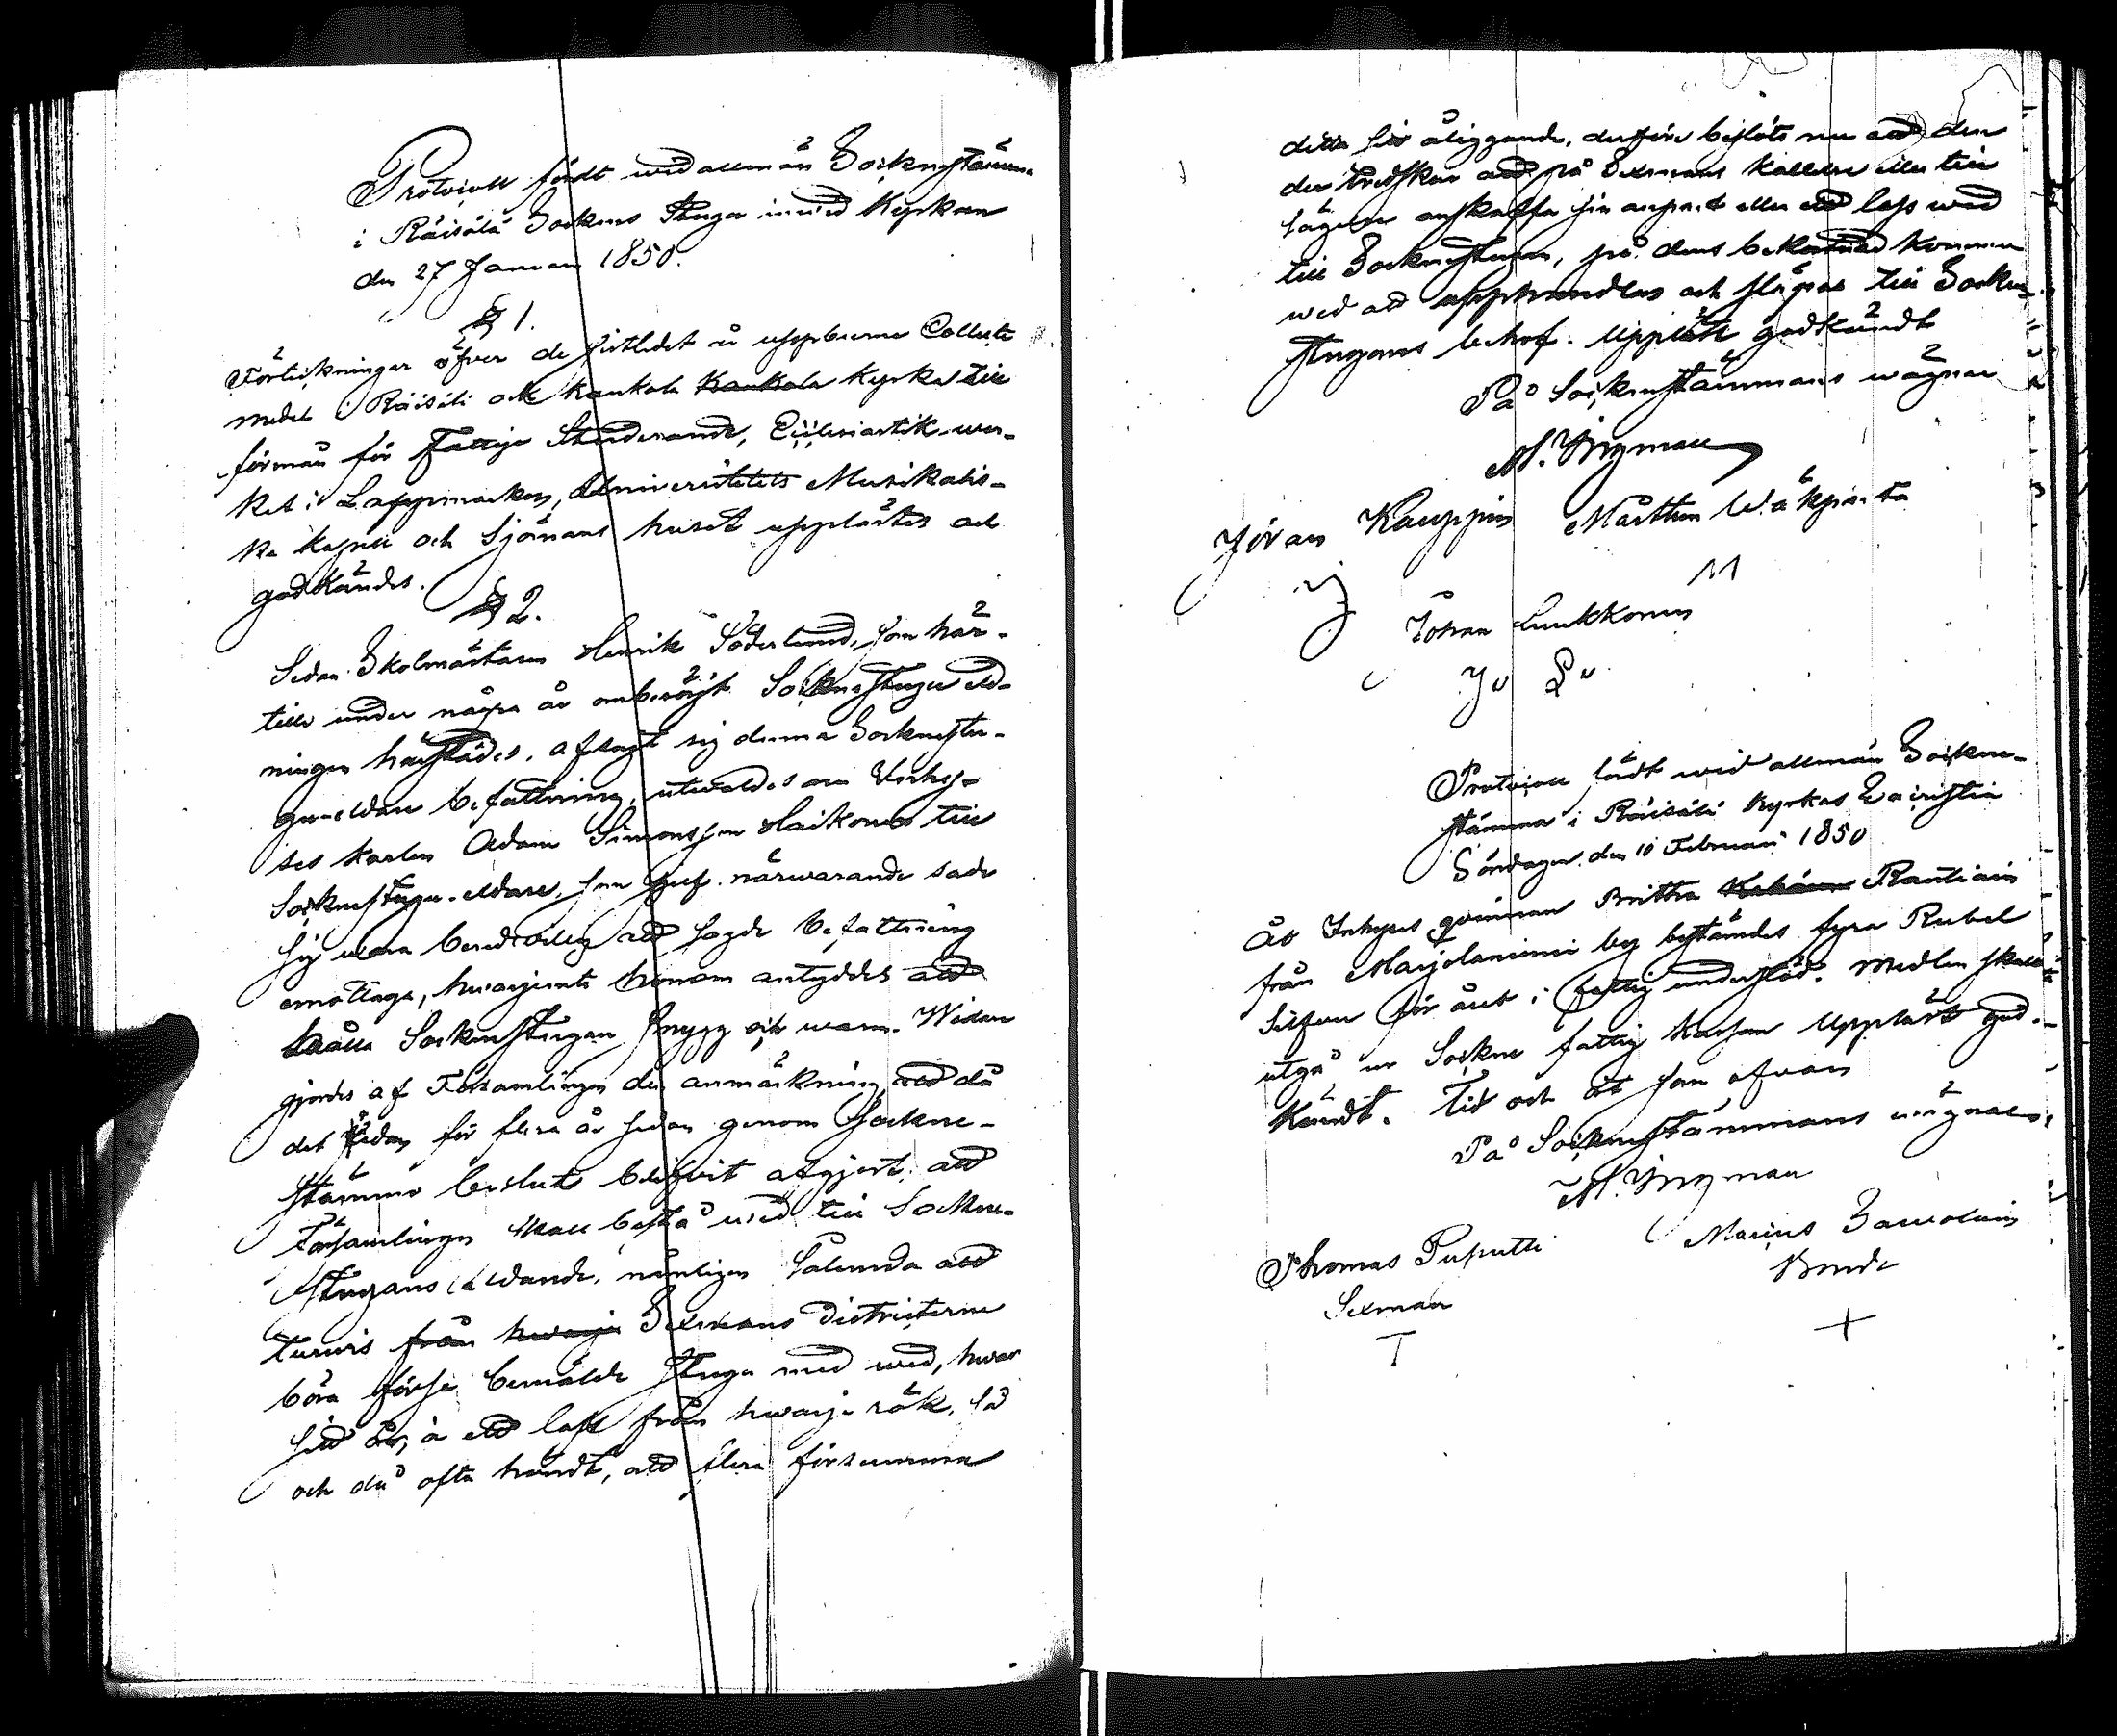 Protocoll fördt wid allmän Socknestämma
i Räisälä Sockens Stuga invid Kyrkan
den 27 Januari 1850.
§ 1.
Förteckningar öfver de sistledet år uppburne Collecte
medel i Räisälä och Kaukola Kaukola Kyrka till
förmån för Fattige Studerande, Ecclesiastik-wer-
ket i Lappmarken, Universitetets Musikalis-
ka Capell och Sjömans huset upplästes och
godkändes.
§ 2.
Sedan Skolmästaren Henrik Söderlund, som här-
tills under några år ombesörjt Sockenstugu eld-
ningen härstädes, afsagt sig denna Sockenstu-
gu-eldare befattning, utvaldes nu Inhys-
ses karlen Adam Simonsson Haikonen till
Sockenstugu-eldare, som sjelf närwarande sade
sig wara beredvillig att sagde befattning
emottaga, hwarjemte honom antyddes att
hålla Sockenstugan snygg och warm. Widare
gjordes af Församlingen den anmärkning att då
det redan för flera år sedan genom Sockne-
stämmo beslut blifvit afgjort, att
Församlingen skall bestå wed till Sockne-
stugans eldande, nämligen sålunda att
turvis från hwarje Sexmans Districterne
böra förse bemälde Stuga med wed, hwar
sitt år, à ett lass från hwarje rök, så
och då ofta händt, att flera försumma
detta sitt åliggande, derföre beslöts nu att den
der tredskar att på Sexmans kallelse eller till
sägelse anskaffa sin anpart eller ett lass wed
till Sockenstugan, på dens bekostnad kommer
wed att upphandlas och släpas till Socken-
stugans behof. Uppläst godkändt
På Sockenstämmans wägnar
M. Ingman
Jöran Kauppin Mårtten Wäkiparta
M
Johan Luukkonen
Jo L
Protocoll fördt wid allmän Sockne-
stämma i Räisälä Kyrkas Sacristia
Söndagen den 10 Februari 1850
Åt Inhyses qvinnan Britha Rautiain
från Marjolaniemi by bestämdes fyra Rubel
Silfver för året i fattig understöd. Medlen skall
utgå ur Sockne fattig kassan Uppläst god-
kändt. Tid och ort som ofvan
På Sockenstämmans wägnar
M. Ingman
Thomas Puputti Sexman
T
Marcus Sawolain
Bonde
+